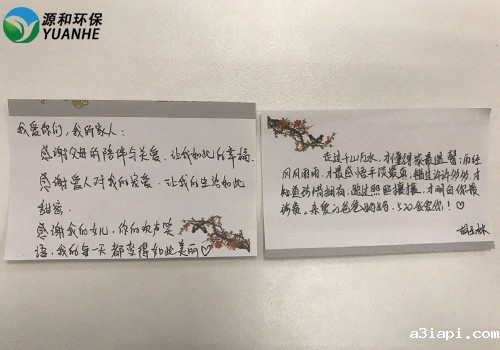 源和环保
YUANHE
我爱你们，我的家人：
感谢父母的陪伴与关爱，让我如此的幸福.
感谢爱人对我的宠爱，让我的生活如此
甜蜜.
感谢我的女儿，你的欢声笑
语，我的每一天都变得如此美丽♡
走过千山万水，才懂得家最温馨；历经
风风雨雨，才最感悟平淡最真，错过许许多多，才
知道珍惜拥有，踏过熙熙攘攘，才明白你最
珍贵。亲爱的爸爸妈妈，520我爱你！♡
a3iapi.com